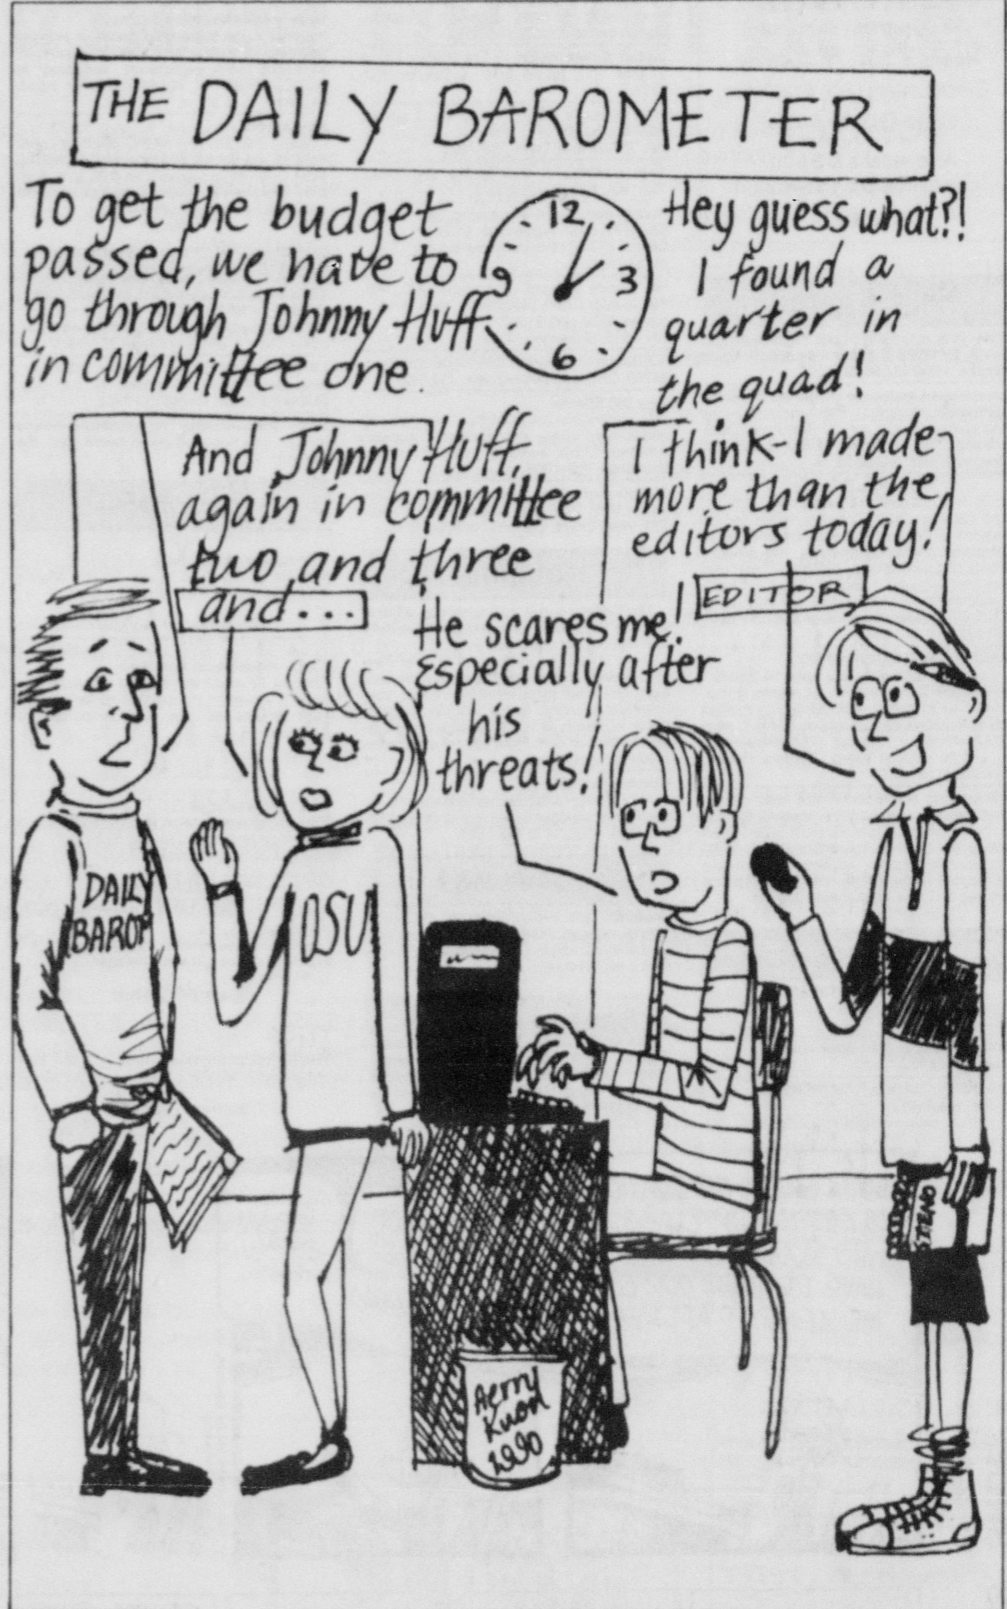 THE DAILY BAROMETER
To get the budget
passed, we have to
go through Johnny Huff
in committee one.
12
3
6
9
Hey guess what?!
I found a
quarter in
the quad!
And Johnny Huff,
again in committee
two and three
and...
I think I made
more than the
editors today!
EDITOR
He scares me!
Especially after
his
threats!
DAILY
BAROM
OSU
STENO
Kuon
1990